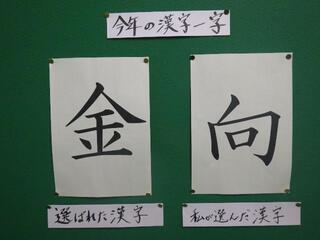 今年の漢字一字
金
向
選ばれた漢字
私が選んだ漢字